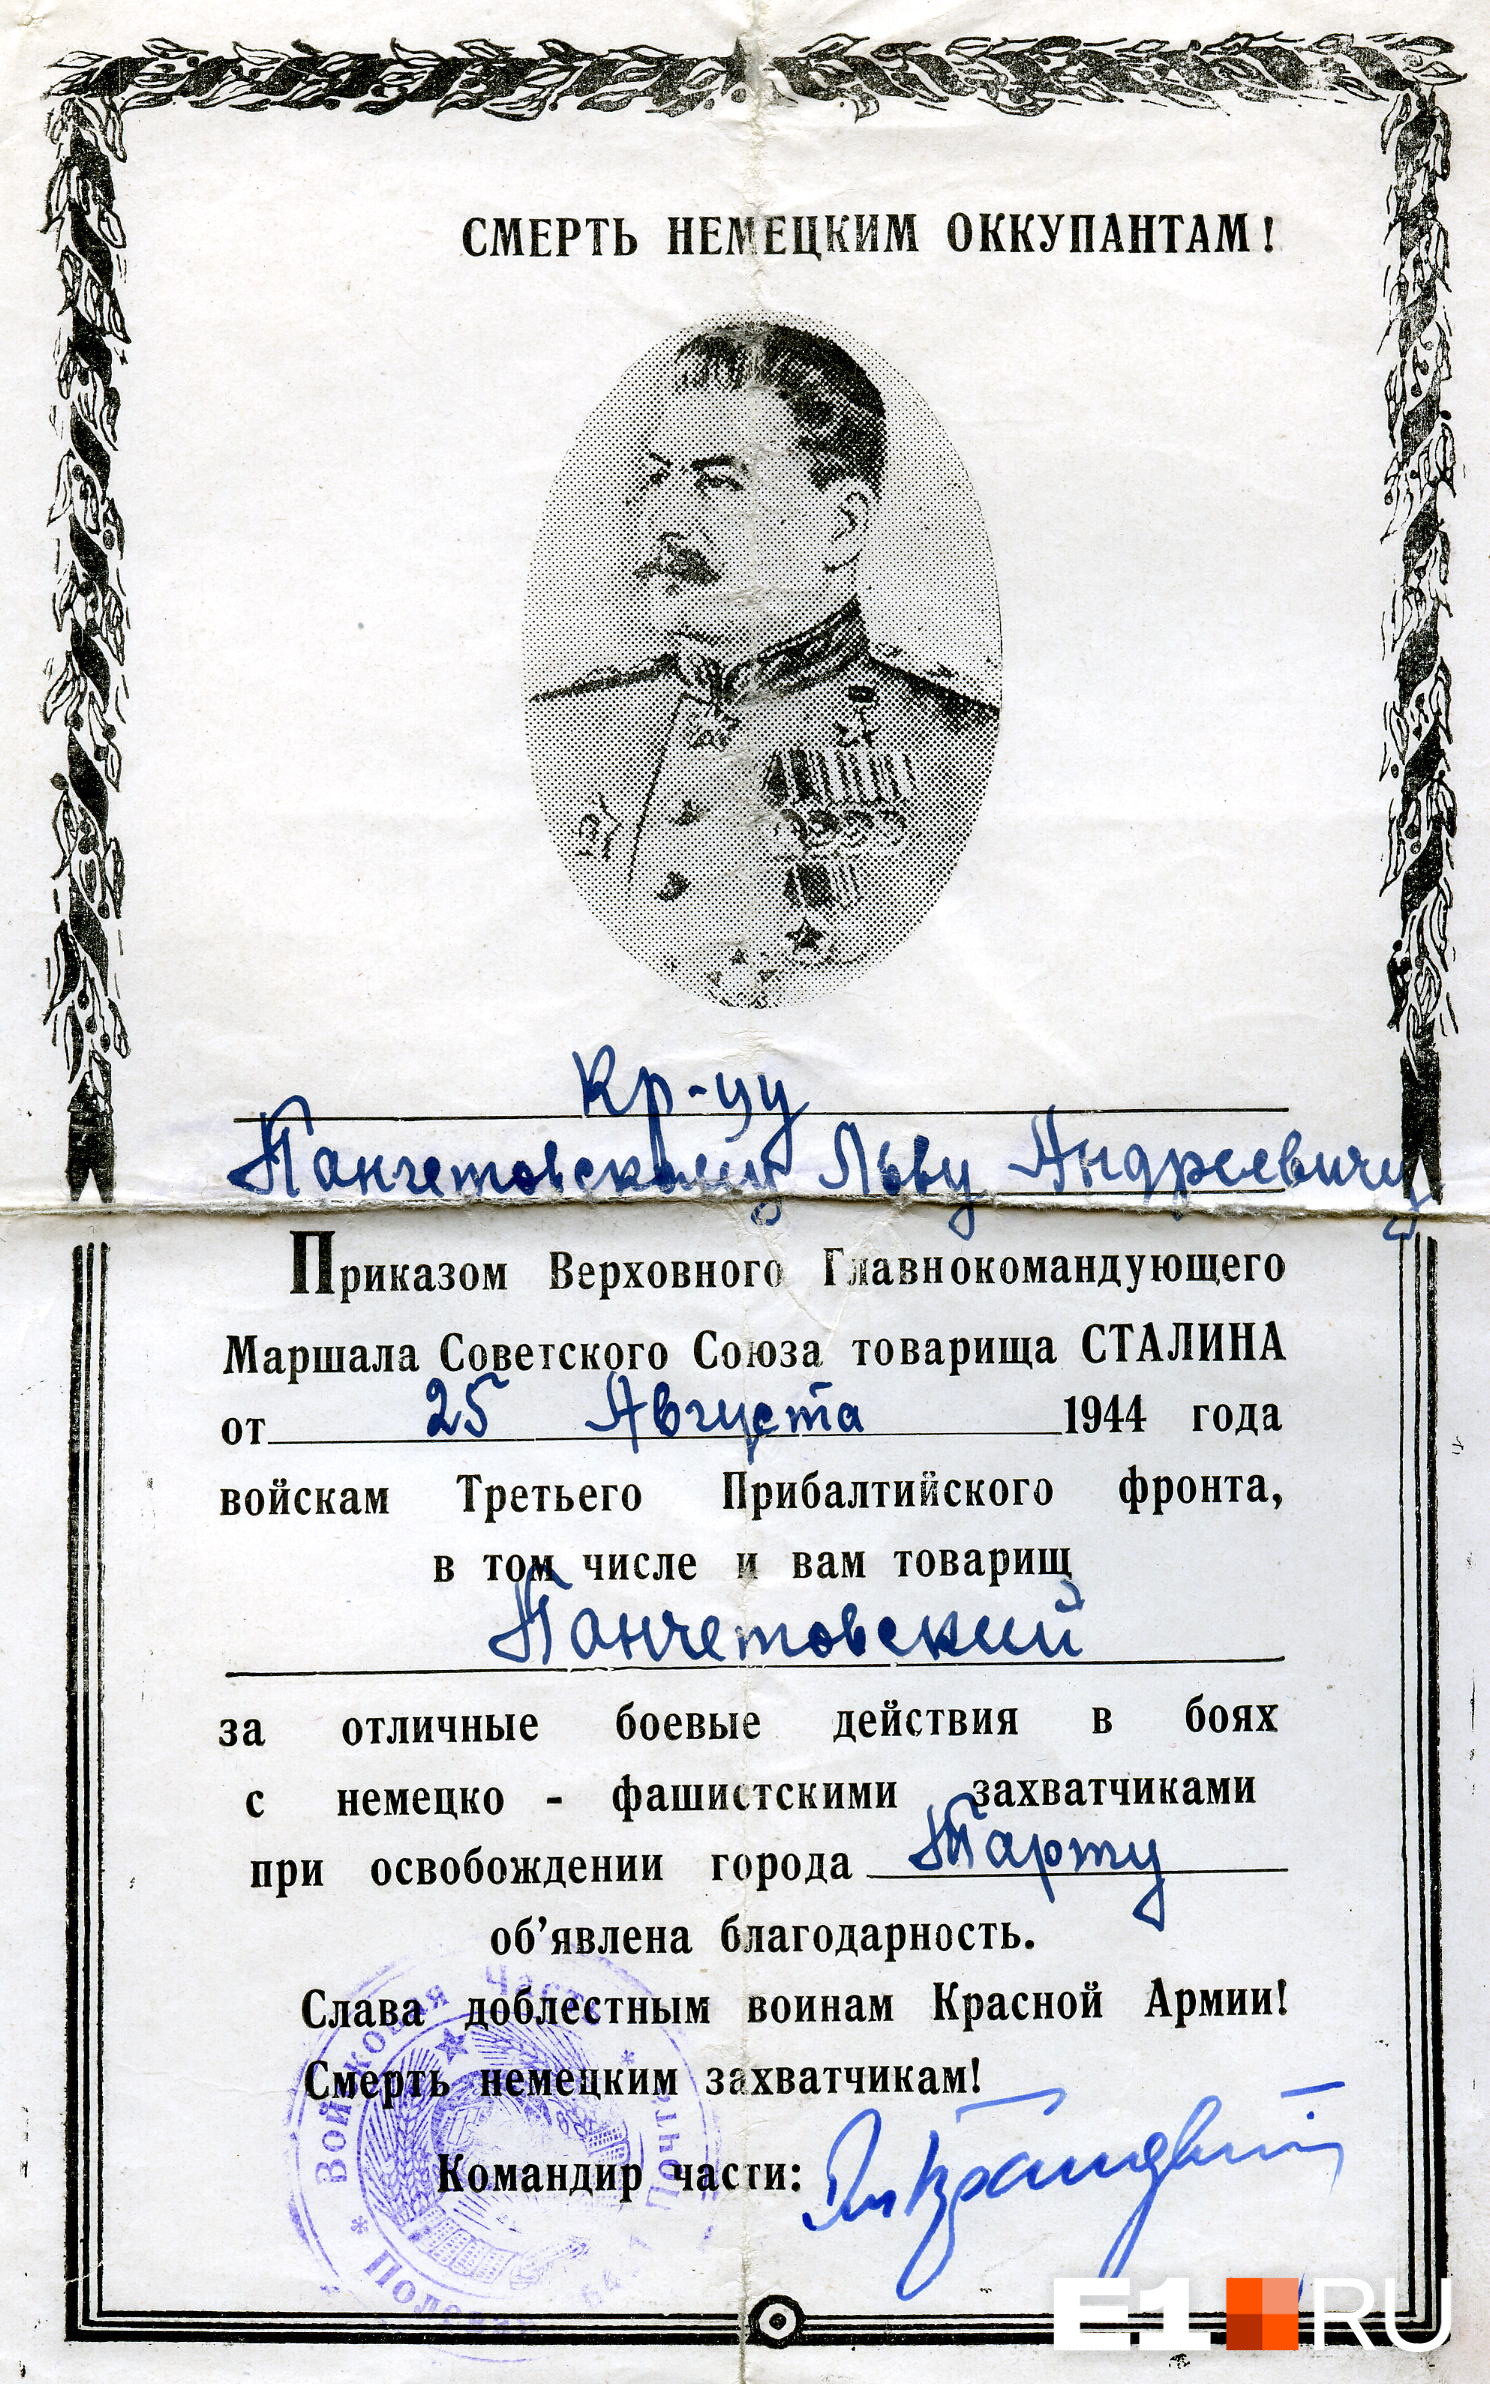 СМЕРТЬ НЕМЕЦКИМ ОККУПАНТАМ!
Кр-цу
Панчетовскому Льву Андреевичу
Приказом Верховного Главнокомандующего
Маршала Советского Союза товарища СТАЛИНА
от 25 Августа 1944 года
войскам Третьего Прибалтийского фронта,
в том числе и вам товарищ
Панчетовский
за отличные боевые действия в боях
с немецко - фашистскими захватчиками
при освобождении города Тарту
об’явлена благодарность.
Слава доблестным воинам Красной Армии!
Смерть немецким захватчикам!
Командир части:
Войсковая Часть
* Полевая Почта *
E1 RU